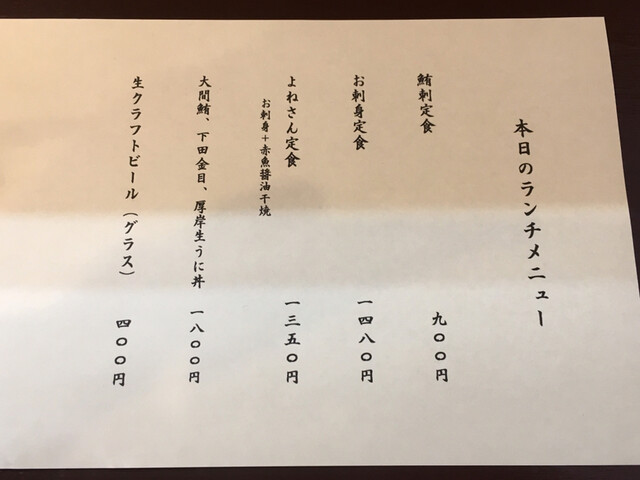 本日のランチメニュー
鮪刺定食 九〇〇円
お刺身定食 一四八〇円
よねさん定食 一三五〇円
お刺身+赤魚醤油干焼
大間鮪、下田金目、厚岸生うに丼 一八〇〇円
生クラフトビール(グラス) 四〇〇円